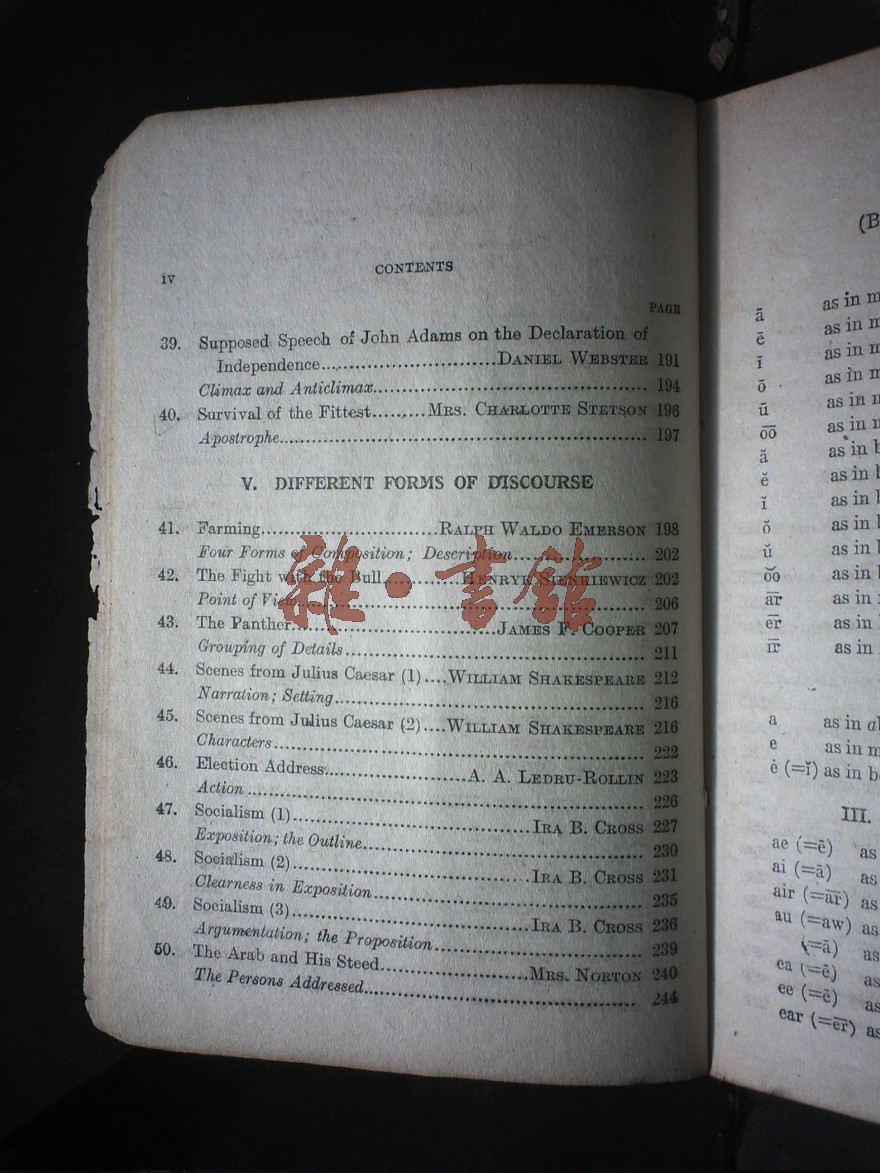 iv
CONTENTS
PAGE
39. Supposed Speech of John Adams on the Declaration of
Independence..............................DANIEL WEBSTER 191
Climax and Anticlimax.......................................... 194
40. Survival of the Fittest.........MRS. CHARLOTTE STETSON 196
Apostrophe........................................................ 197
V. DIFFERENT FORMS OF DISCOURSE
41. Farming...........................RALPH WALDO EMERSON 198
Four Forms of Composition; Description.................... 202
42. The Fight with the Bull............HENRYK SIENKIEWICZ 202
Point of View.................................................... 206
43. The Panther...............................JAMES F. COOPER 207
Grouping of Details.............................................. 211
44. Scenes from Julius Caesar (1)....WILLIAM SHAKESPEARE 212
Narration; Setting............................................... 216
45. Scenes from Julius Caesar (2)....WILLIAM SHAKESPEARE 216
Characters......................................................... 222
46. Election Address......................A. A. LEDRU-ROLLIN 223
Action.............................................................. 226
47. Socialism (1)....................................IRA B. CROSS 227
Exposition; the Outline.......................................... 230
48. Socialism (2)....................................IRA B. CROSS 231
Clearness in Exposition......................................... 235
49. Socialism (3)....................................IRA B. CROSS 236
Argumentation; the Proposition................................ 239
50. The Arab and His Steed.......................MRS. NORTON 240
The Persons Addressed.......................................... 244
雜·書館
(B
ā as in m
ē as in m
ī as in m
ō as in m
ū as in m
o͞o as in m
ă as in b
ĕ as in b
ĭ as in b
ŏ as in b
ŭ as in b
o͝o as in b
ār as in
ēr as in
īr as in
a as in al
e as in m
ė (=ĭ) as in b
III.
ae (=ē) as
ai (=ā) as
air (=ār) as
au (=aw) as
(=ä) as
ea (=ē) as
ee (=ē) as
ear (=ēr) as